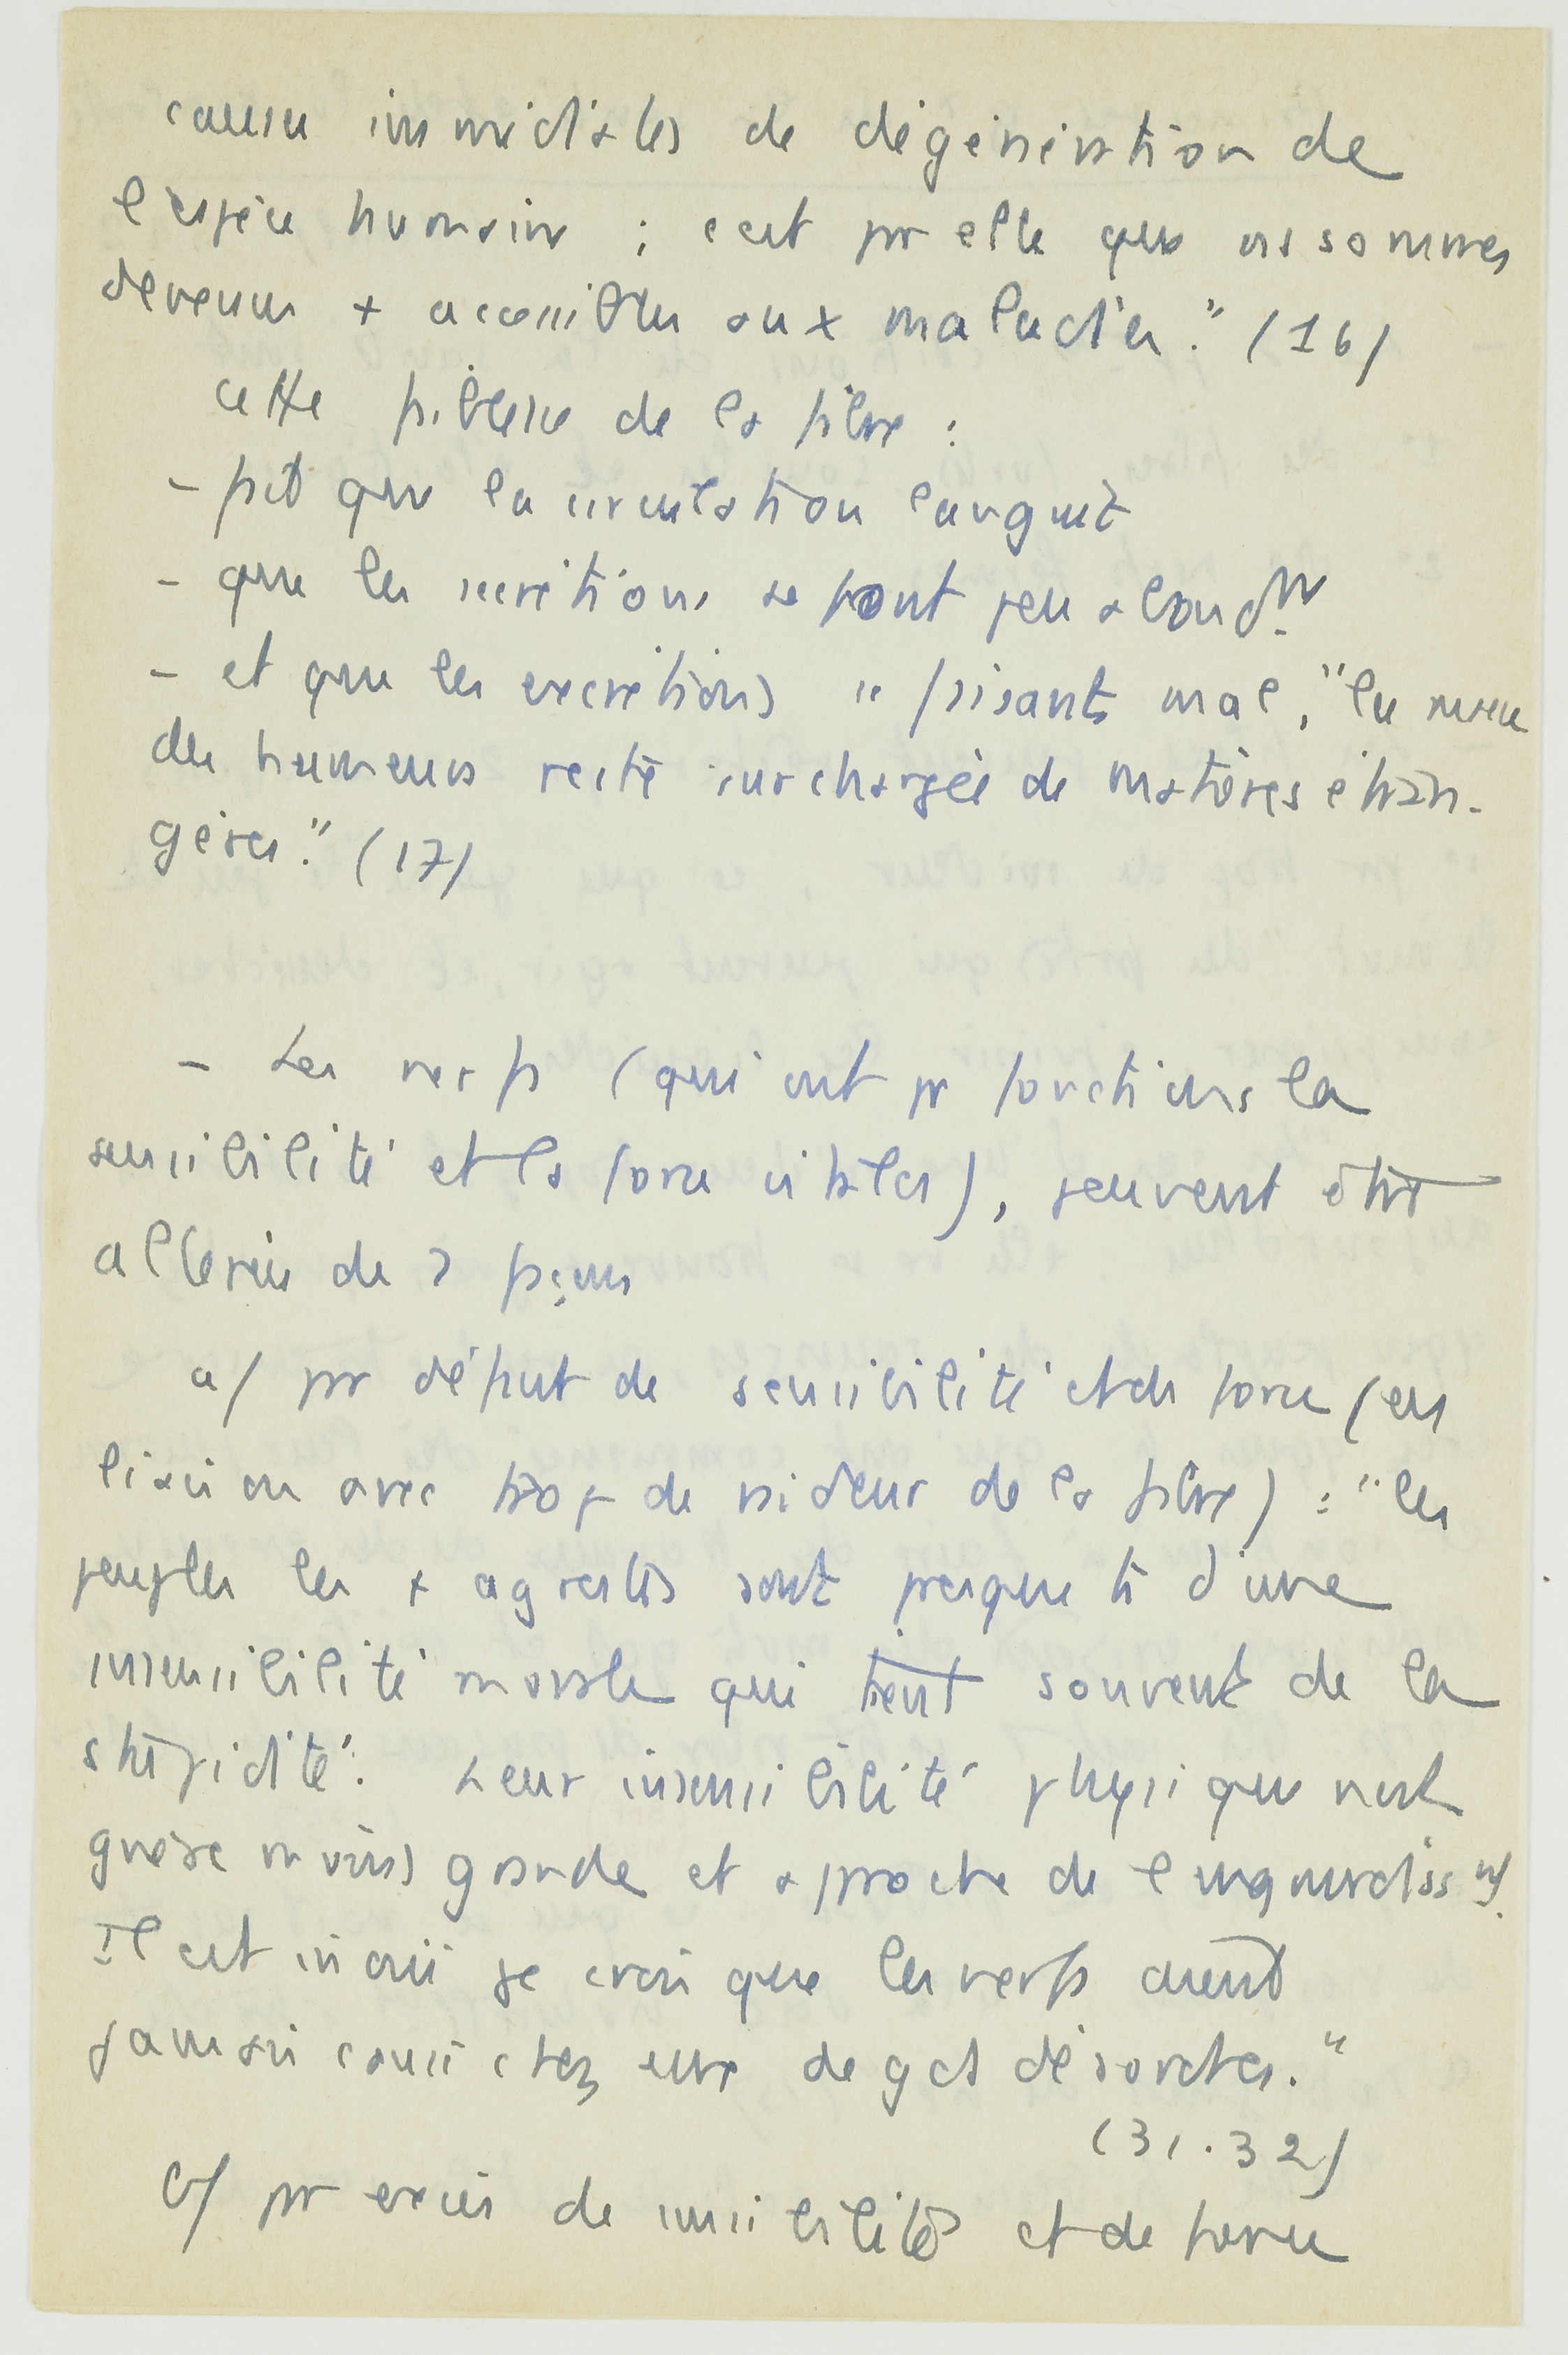 causes immédiates de dégénération de
l'espèce humaine ; c'est par elle que ns sommes
devenus + accessibles aux maladies." (16)
cette faiblesse de la fibre :
- fait que la circulation languit
- que les sécrétions se font peu abondmt
- et que les excrétions se faisant mal, "la masse
des humeurs reste surchargée de matières étran-
gères." (17)
- Les nerfs (qui ont pr fonctions la
sensibilité et la force vitales), peuvent être
altérés de 2 façons
a/ par défaut de sensibilité et de force (en
liaison avec trop de roideur de la fibre) : "les
peuples les + agrestes sont presque ts d'une
insensibilité morale qui tient souvent de la
stupidité". Leur insensibilité physique n'est
guère moins grande et approche de l'engourdissmt.
Il est inouï je crois que les nerfs aient
jamais causé chez eux de gds désordres."
(31.32)
b/ par excès de sensibilité et de force